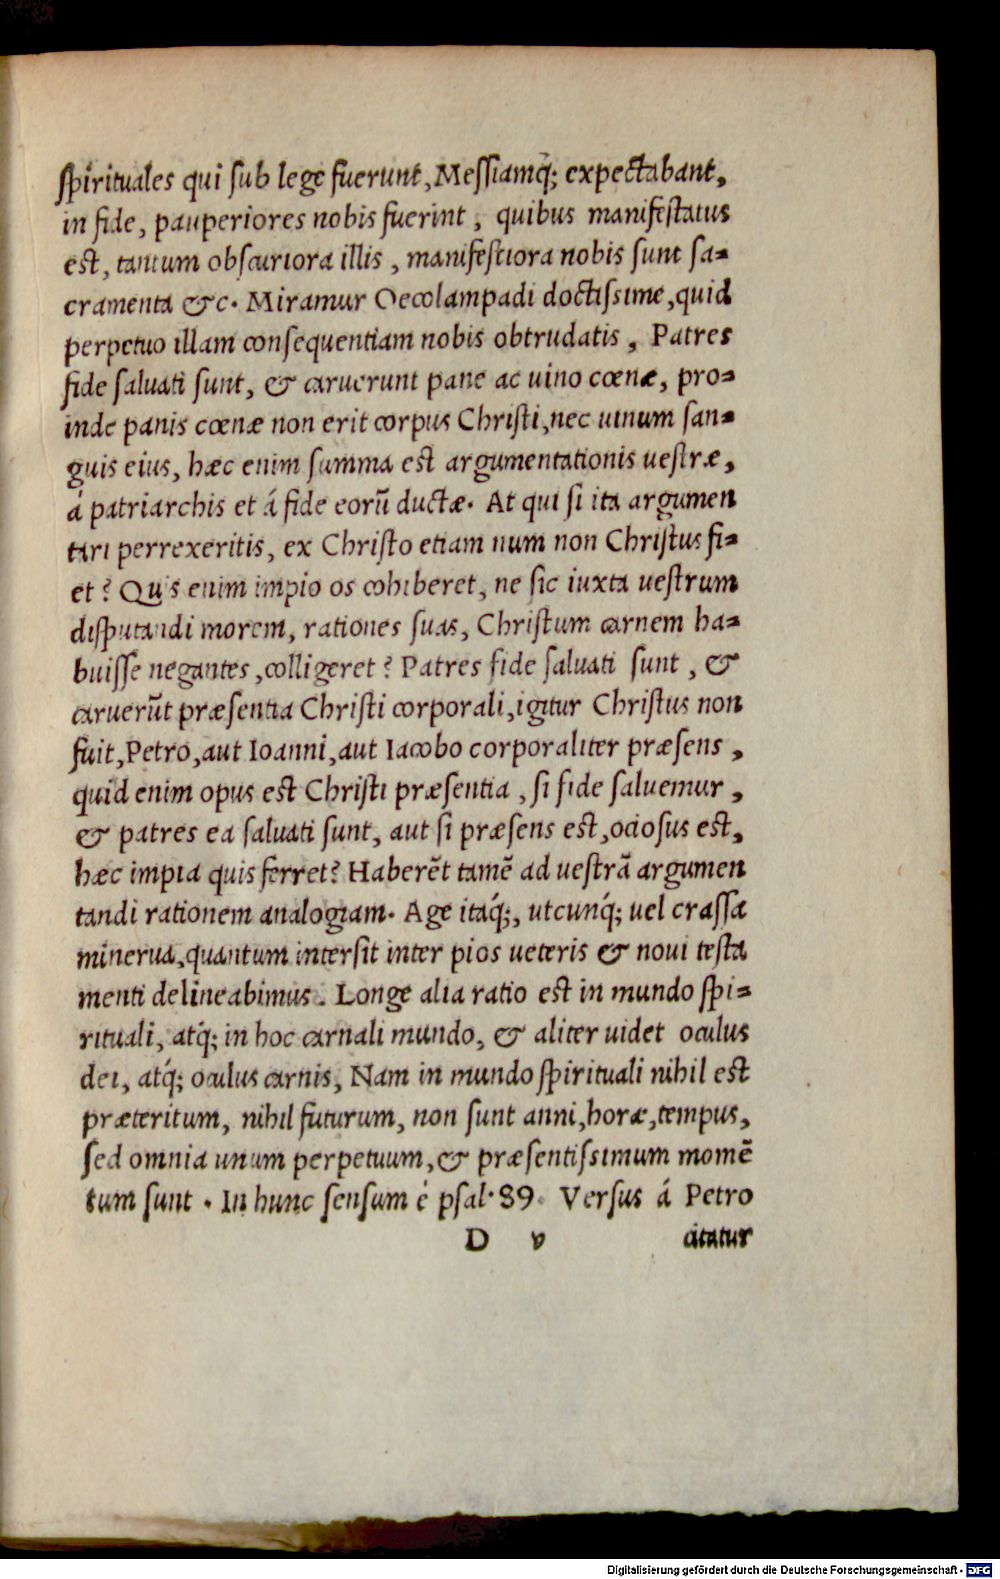 spirituales qui sub lege fuerunt, Messiamq́; expectabant,
in fide, pauperiores nobis fuerint, quibus manifestatus
est, tantum obscuriora illis, manifestiora nobis sunt sa=
cramenta &c. Miramur Oecolampadi doctissime, quid
perpetuo illam consequentiam nobis obtrudatis, Patres
fide saluati sunt, & caruerunt pane ac uino cœnæ, pro=
inde panis cœnæ non erit corpus Christi, nec uinum san=
guis eius, hæc enim summa est argumentationis uestræ,
á patriarchis et á fide eorũ ductæ. At qui si ita argumen
tari perrexeritis, ex Christo etiam num non Christus fi=
et? Quis enim impio os cohiberet, ne sic iuxta uestrum
disputandi morem, rationes suas, Christum carnem ha=
buisse negantes, colligeret? Patres fide saluati sunt, &
caruerũt præsentia Christi corporali, igitur Christus non
fuit, Petro, aut Ioanni, aut Iacobo corporaliter præsens,
quid enim opus est Christi præsentia, si fide saluemur,
& patres ea saluati sunt, aut si præsens est, ociosus est,
hæc impia quis ferret? Haberẽt tamẽ ad uestrã argumen
tandi rationem analogiam. Age itaq́;, utcunq́; uel crassa
minerua, quantum intersit inter pios ueteris & noui testa
menti delineabimus. Longe alia ratio est in mundo spi=
rituali, atq́; in hoc carnali mundo, & aliter uidet oculus
dei, atq́; oculus carnis, Nam in mundo spirituali nihil est
præteritum, nihil futurum, non sunt anni, horæ, tempus,
sed omnia unum perpetuum, & præsentissimum momẽ
tum sunt. In hunc sensum é psal. 89. Versus á Petro
D v citatur
Digitalisierung gefördert durch die Deutsche Forschungsgemeinschaft - DFG